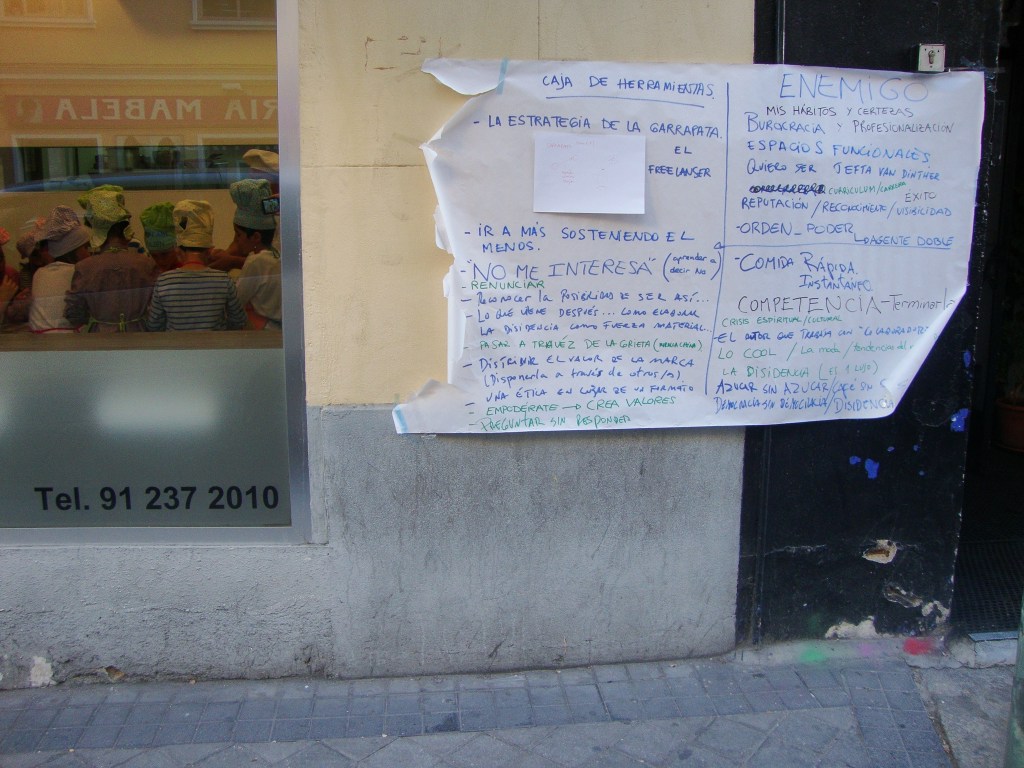 RIA MABELA
Tel. 91 237 2010
CAJA DE HERRAMIENTAS.
- LA ESTRATEGIA DE LA GARRAPATA.
EL
FREELANSER
- IR A MÁS SOSTENIENDO EL
MENOS.
- "NO ME INTERESA" (aprender a
decir NO)
- RENUNCIAR
- Reconocer la POSIBILIDAD DE SER ASÍ...
- LO QUE VIENE DESPUÉS... COMO ELABORAR
LA DISIDENCIA COMO FUERZA MATERIAL.
- PASAR A TRAVEZ DE LA GRIETA
- DISTRIBUIR EL VALOR DE LA MARCA
(Disponerla a través de otros/as)
- UNA ÉTICA EN LUGAR DE UN FORMATO
- EMPODÉRATE → CREA VALORES
- PREGUNTAR SIN RESPONDER
ENEMIGO
MIS HÁBITOS Y CERTEZAS
BUROCRACIA Y PROFESIONALIZACIÓN
ESPACIOS FUNCIONALES
QUIERO SER JEFTA VAN DINTHER
CURRICULUM/CARRERA
ÉXITO
REPUTACIÓN/RECONOCIMIENTO/VISIBILIDAD
-ORDEN_PODER
AGENTE DOBLE
- COMIDA RÁPIDA.
INSTANTÁNEO
COMPETENCIA-Terminarla
CRISIS ESPIRITUAL/CULTURAL
-EL AUTOR QUE TRABAJA CON "COLABORADORES"
LO COOL / La moda / tendencias del
LA DISIDENCIA (ES 1 LUJO)
AZUCAR SIN AZUCAR/CAFÉ SIN
DEMOCRACIA SIN DEMOCRACIA/DISIDENCIA